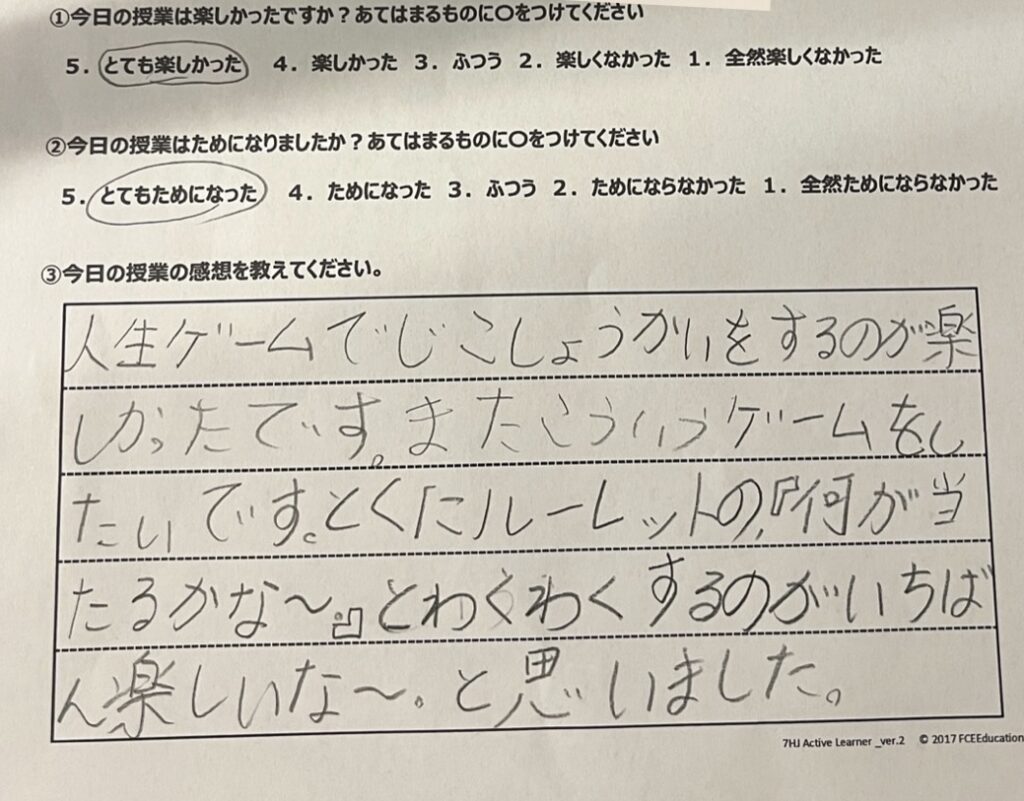 ①今日の授業は楽しかったですか？あてはまるものに〇をつけてください
5． とても楽しかった 4． 楽しかった 3． ふつう 2． 楽しくなかった 1． 全然楽しくなかった
②今日の授業はためになりましたか？あてはまるものに〇をつけてください
5． とてもためになった 4． ためになった 3． ふつう 2． ためにならなかった 1． 全然ためにならなかった
③今日の授業の感想を教えてください。
人生ゲームでじこしょうかいをするのが楽
しかったです。またこういうゲームをし
たいです。とくにルーレットの、『何が当
たるかな～。』とわくわくするのがいちば
ん楽しいな～。と思いました。
7HJ Active Learner _ver.2 © 2017 FCEEducation